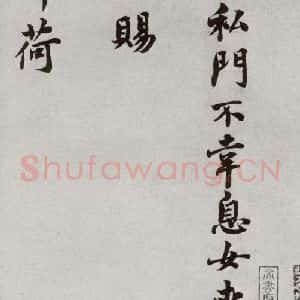 私門不幸息女
賜
荷
Shufawang.CN